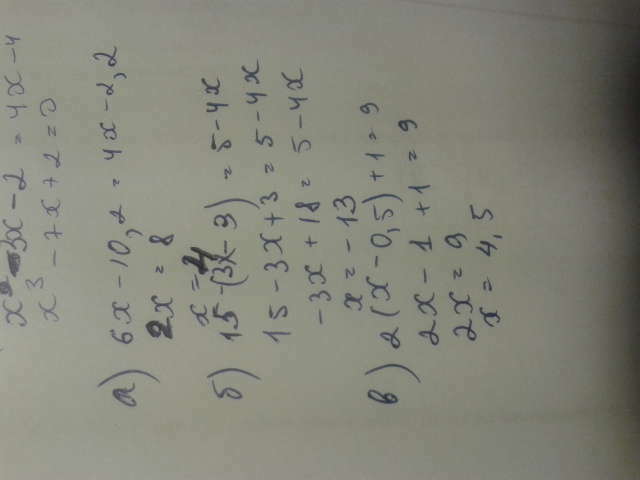 x³ - 3x - 2 = 4x - 4
x³ - 7x + 2 = 0
а) 6x - 10,2 = 4x - 2,2
2x = 8
x = 4
б) 15 - (3x - 3) = 5 - 4x
15 - 3x + 3 = 5 - 4x
-3x + 18 = 5 - 4x
x = -13
в) 2(x - 0,5) + 1 = 9
2x - 1 + 1 = 9
2x = 9
x = 4,5